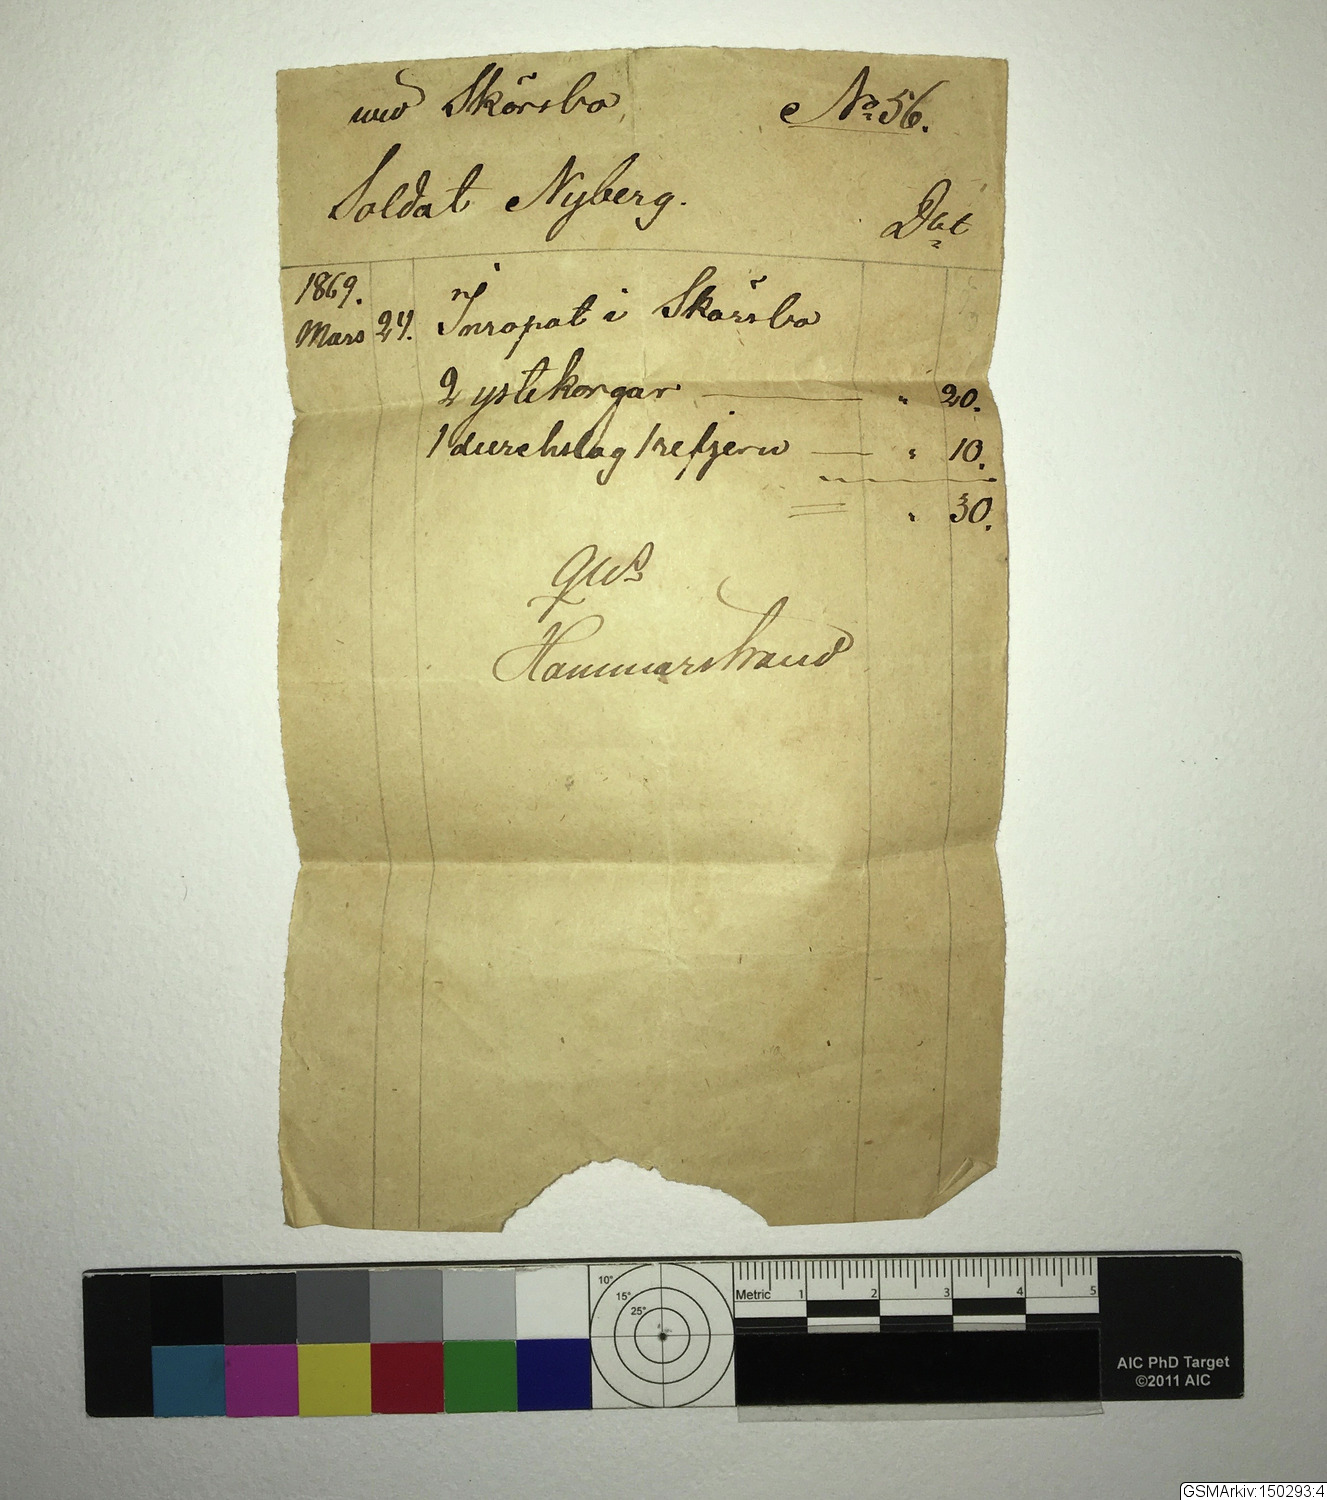 wid Skörsbo, No 56.
Soldat Nyberg. Dbt
1869.
Mars 24. Inropat i Skörsbo
2 ystekorgar — " 20.
1 durchslag 1 refjern — " 10.
" 30.
Qvs
Hammarstrand
10°
15°
25°
Metric 1 2 3 4 5
AIC PhD Target
©2011 AIC
GSMArkiv:150293:4